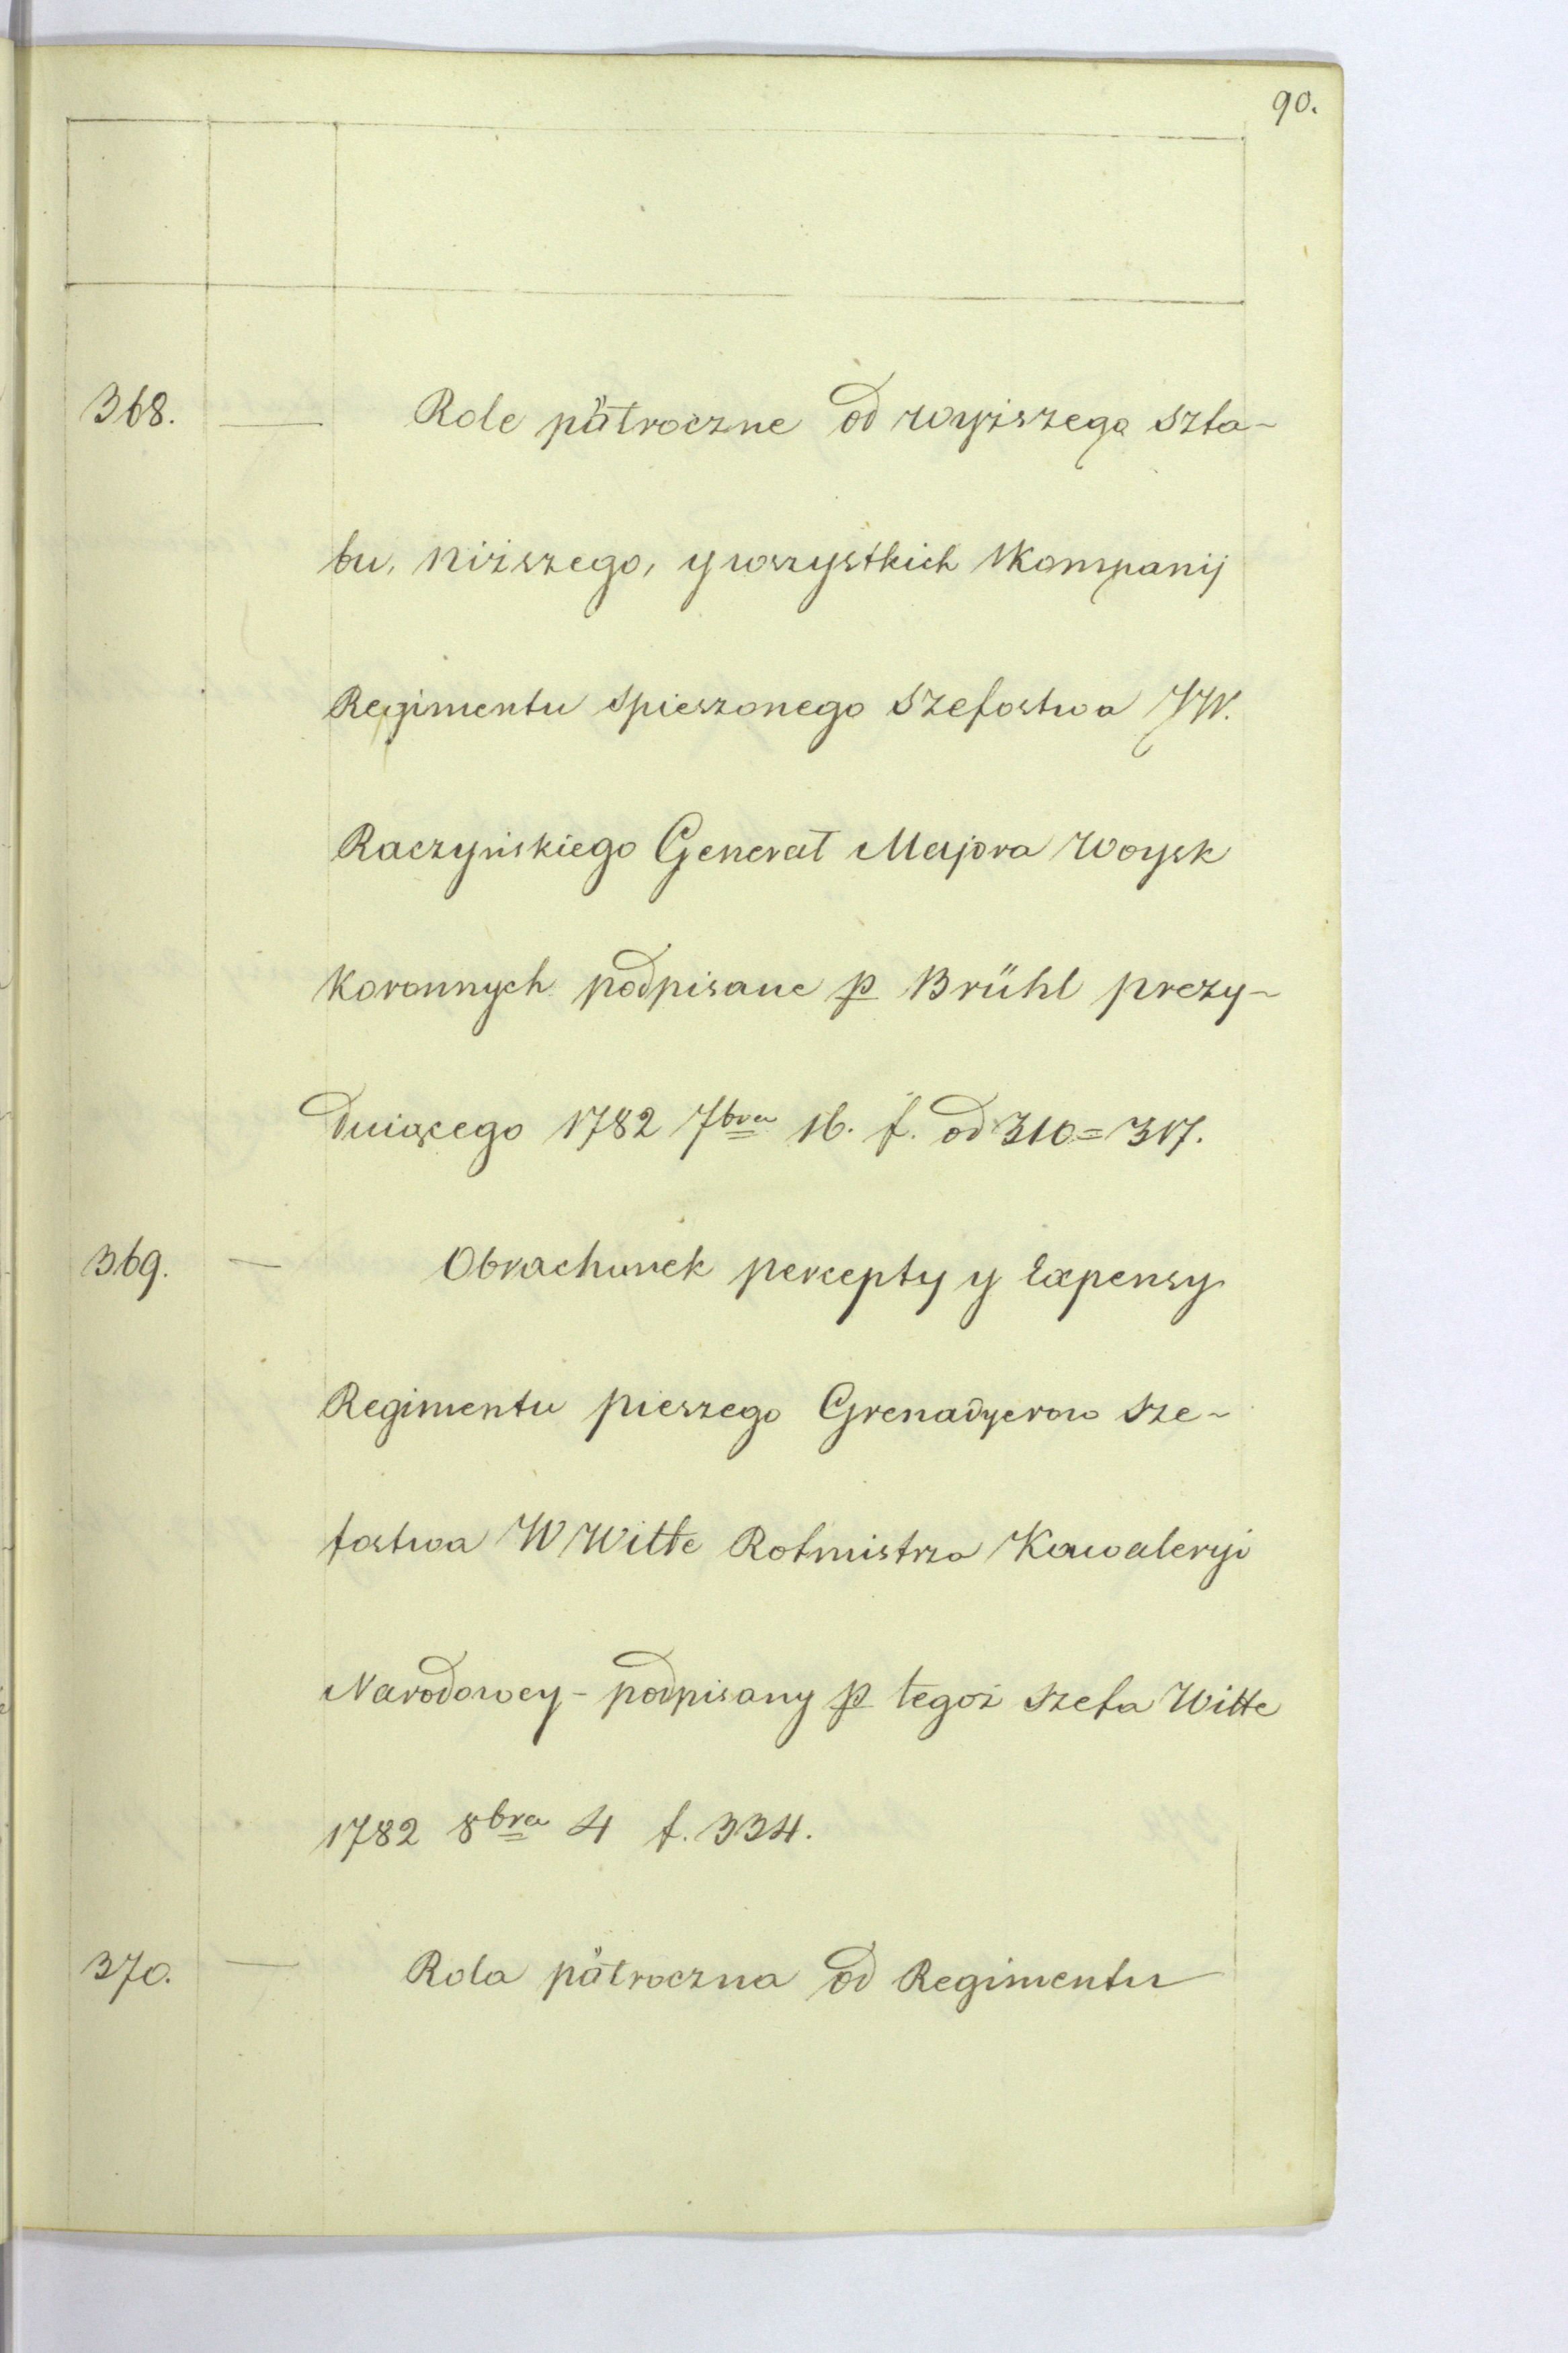 90.
368. — Role pütroczne od wyższego szta-
bu, niższego, y wszystkich Kompanij
Regimentu spieszonego szefostwa JW.
Raczyńskiego Generał Majora Woysk
Koronnych podpisane p Brühl prezy-
duiącego 1782 7bra 16. f. od 310=317.
369. — Obrachunek percepty y Expensy
Regimentu pieszego Grenadyerow sze-
fostwa W Witte Rotmistrza Kawaleryi
Narodowey - podpisany p tegoż szefa Witte
1782 8bra 4 f. 334.
370. — Rola pütroczna od Regimentu